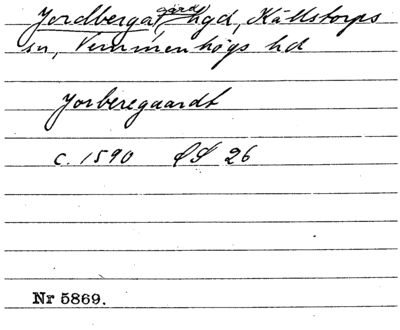 Jordberga, gård, hgd, Källstorps
sn, Vemmenhögs hd
Jorberegaardt
c. 1590 26
Nr 5869.